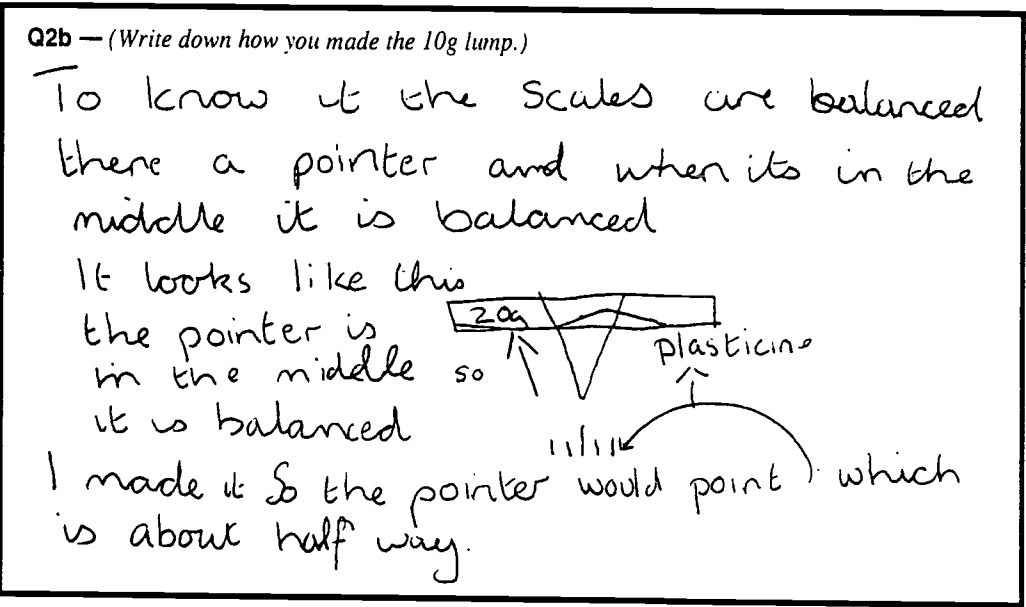 Q2b — (Write down how you made the 10g lump.)
To know it the scales are balanced
there a pointer and when its in the
middle it is balanced
It looks like this
20g
the pointer is
plasticine
in the middle so
it is balanced
I made it so the pointer would point which
is about half way.